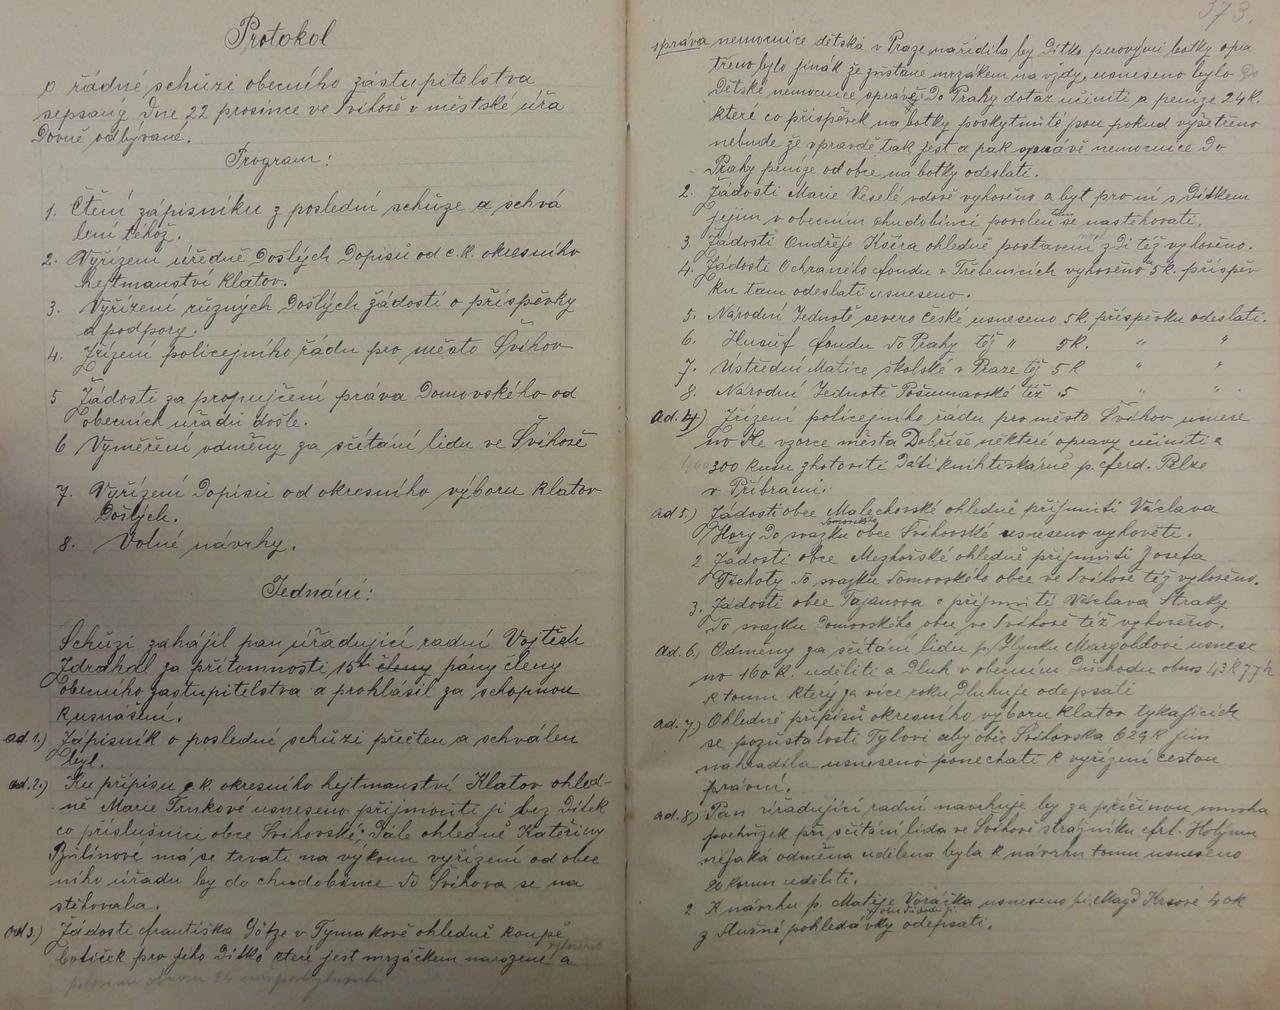 Protokol
o řádné schůzi obecního zástupitelstva
sepsaný dne 22 prosince ve Švihově v městské úřa
dovně odbývané.
Program:
1. Čtení zápisníku z poslední schůze a schvá
lení téhož.
2. Vyřízení úředně došlých dopisů od c.k. okresního
hejtmanství Klatov.
3. Vyřízení různých došlých žádostí o příspěvky
a podpory.
4. Zřízení policejního řádu pro město Švihov
5 Žádosti za propujčení práva domovského od
obecních úřadů došlé.
6 Vyměření odměny za sčítání lidu ve Švihově
7. Vyřízení dopisů od okresního výboru Klatov
došlých.
8. Volné návrhy.
Jednání:
Schůzi zahájil pan úřadující radní Vojtěch
Zdrahal za přítomnosti 15ti členy pány členy
obecního zastupitelstva a prohlásil za schopnou
k usnášení.
ad. 1.) Zápisník o poslední schůzi přečten a schválen
byl.
ad. 2.) Ku přípisu c.k. okresního hejtmanství Klatov ohled-
ně Marie Trnkové usneseno přijmouti ji bez dítek
co příslušnici obce Švihovské; Dále ohledně Kateřiny
má se trvati na výkonu vyřízení od obec
ního úřadu by do chudobince do Švihova se na
stěhovala.
ad 3.) Žádosti Františka Götze v Tymakově ohledně koupě
botiček pro jeho dítko které jest mrzáčkem narozené a
373.
správa nemocnice dětská v Praze nařídila by dítko perovými botky opa
třeno bylo jinák že zůstane mrzákem na vždy, usneseno bylo do
Dětské nemocnice správě do Prahy dotaz učiniti a peníze 24K.
které co příspěvek na botky poskytnuté jsou pokud vyšetřeno
nebude že vpravdě tak jest a pak správě nemocnice do
Prahy peníze od obce na botky odeslati.
2. Žádosti Marie Veselé vdově vyhověno a byt pro ni s dítkem
jejím v obecním chudobinci povolen se nastěhovati.
3. Žádosti Ondřeje Kšíra ohledně postavení zdi též vyhověno.
4. Žádosti Ochraného fondu v Třebenicích vyhověno a 5K. příspěv
ku tam odeslati usneseno.
5. Národní Jednotě severo České usneseno 5K. příspěvku odeslati.
6. Husův fondu do Prahy též " 5K. " "
7. Ústřední Matice školské v Praze též 5K " "
8. Národní Jednotě Pošumavské též 5 " "
ad. 4) Zřízení policejního řádu pro město Švihov usnese
no dle vzorce města Dobříše některé opravy učiniti a
300 kusu zhotoviti dáti knihtiskárně p. Ferd. Pelze
v Příbrami.
ad 5.) Žádosti obce Malechovské ohledně přijmutí Václava
Hory do svazku domovského obce Švihovské usneseno vyhověti.
2 Žádosti obce Mezhořské ohledně přijmutí Josefa
Tichoty do svazku domovského obce ve Švihově též vyhověno.
3. Žádosti obce Tajanova o přijmutí Václava Straky
do svazku domovského obce ve Švihově též vyhověno.
ad. 6.) Odměny za sčítání lidu p. Hynku Margoldovi usnese
no 160K. uděliti a dluh v obecním důchodu obnos 43K 77h
k tomu který za více roku dluhuje odepsati
ad. 7.) Ohledně přípisů okresního výboru Klatov týkajících
se pozůstalosti Tylovi aby obec Švihovska 629K jim
nahradila usneseno ponechati k vyřízení cestou
právní.
ad. 8.) Pan úřadující radní navrhuje by za příčinou mnoha
pochůzek při sčítání lidu ve Švihově strážníku
nějaká odměna udělena byla k návrhu tomu usneseno
20 korun uděliti.
2. K návrhu p. Matěje Voráčka usneseno pí. Magd Krsové 40K
z dlužné pohledávky odepsati.